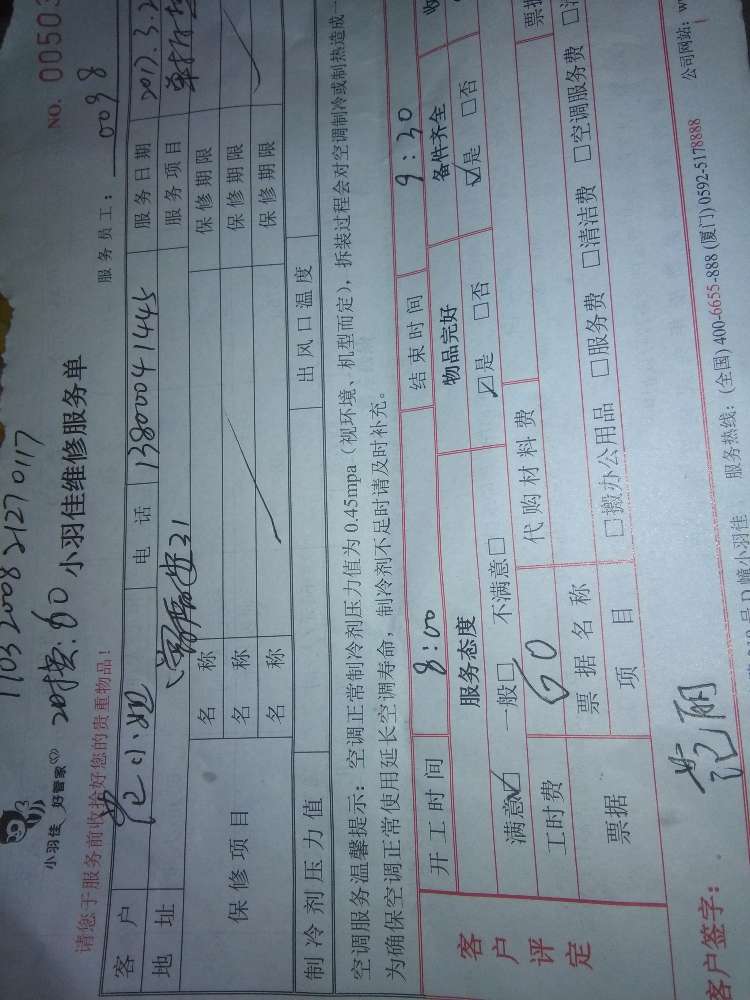 1103200821270117
NO. 00503
小羽佳 好管家
60 小羽佳维修服务单
服务员工： 0098
请您于服务前收拾好您的贵重物品！
客户 范小姐 电话 13800041445 服务日期 2017.3.2
地址 31 服务项目
保修项目 名称 保修期限
名称 保修期限
名称 保修期限
制冷剂压力值 出风口温度
空调服务温馨提示：空调正常制冷剂压力值为0.45mpa（视环境、机型而定），拆装过程会对空调制冷或制热造成一
为确保空调正常使用延长空调寿命，制冷剂不足时请及时补充。
开工时间 8:00 结束时间 9:30 收
客户评定 服务态度 物品完好 备件齐全
满意☑ 一般□ 不满意□ ☑是 □否 ☑是 □否
工时费 60 代购材料费 票据
票据 票据名称
项目 □搬办公用品 □服务费 □清洁费 □空调服务费 □
客户签字： 范丽
服务热线：(全国) 400-6655-888 (厦门) 0592-5178888 公司网站：w